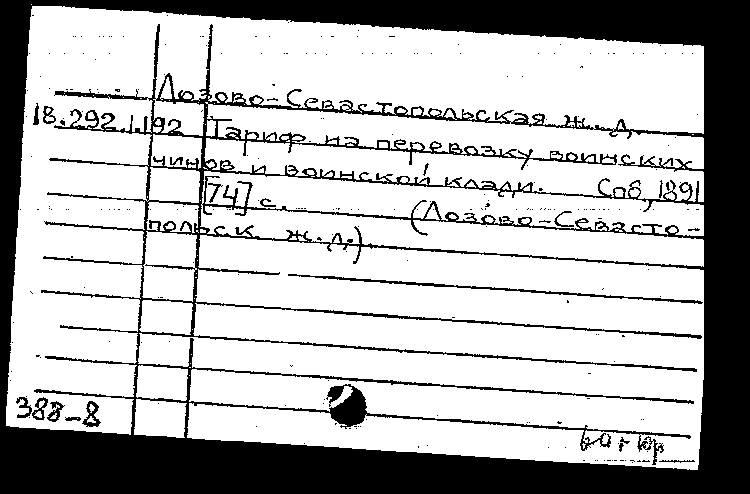 Лозово-Севастопольская ж. д.
18.292.1.192 Тариф на перевозку воинских
чинов и воинской клади. Спб, 1891
[74] с. (Лозово-Севасто-
польск. ж.д.).
388-8